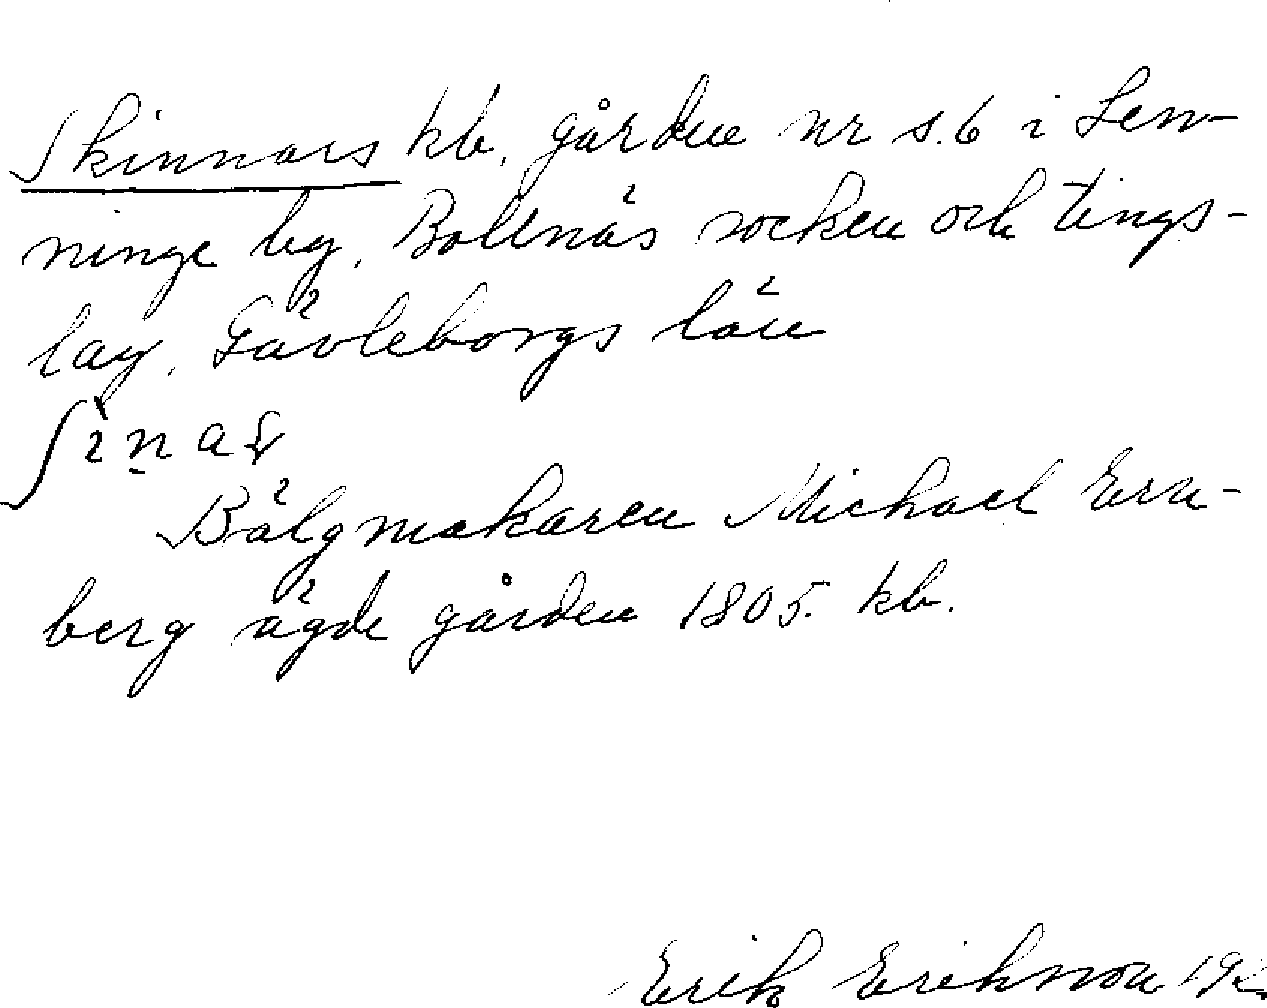 Skinnars kb. gården nr s. 6 i Len-
ninge by, Bollnäs socken och tings-
lag, Gävleborgs län
Bälgmakaren Michael Ern-
berg ägde gården 1805. kb.
Erik Erikson